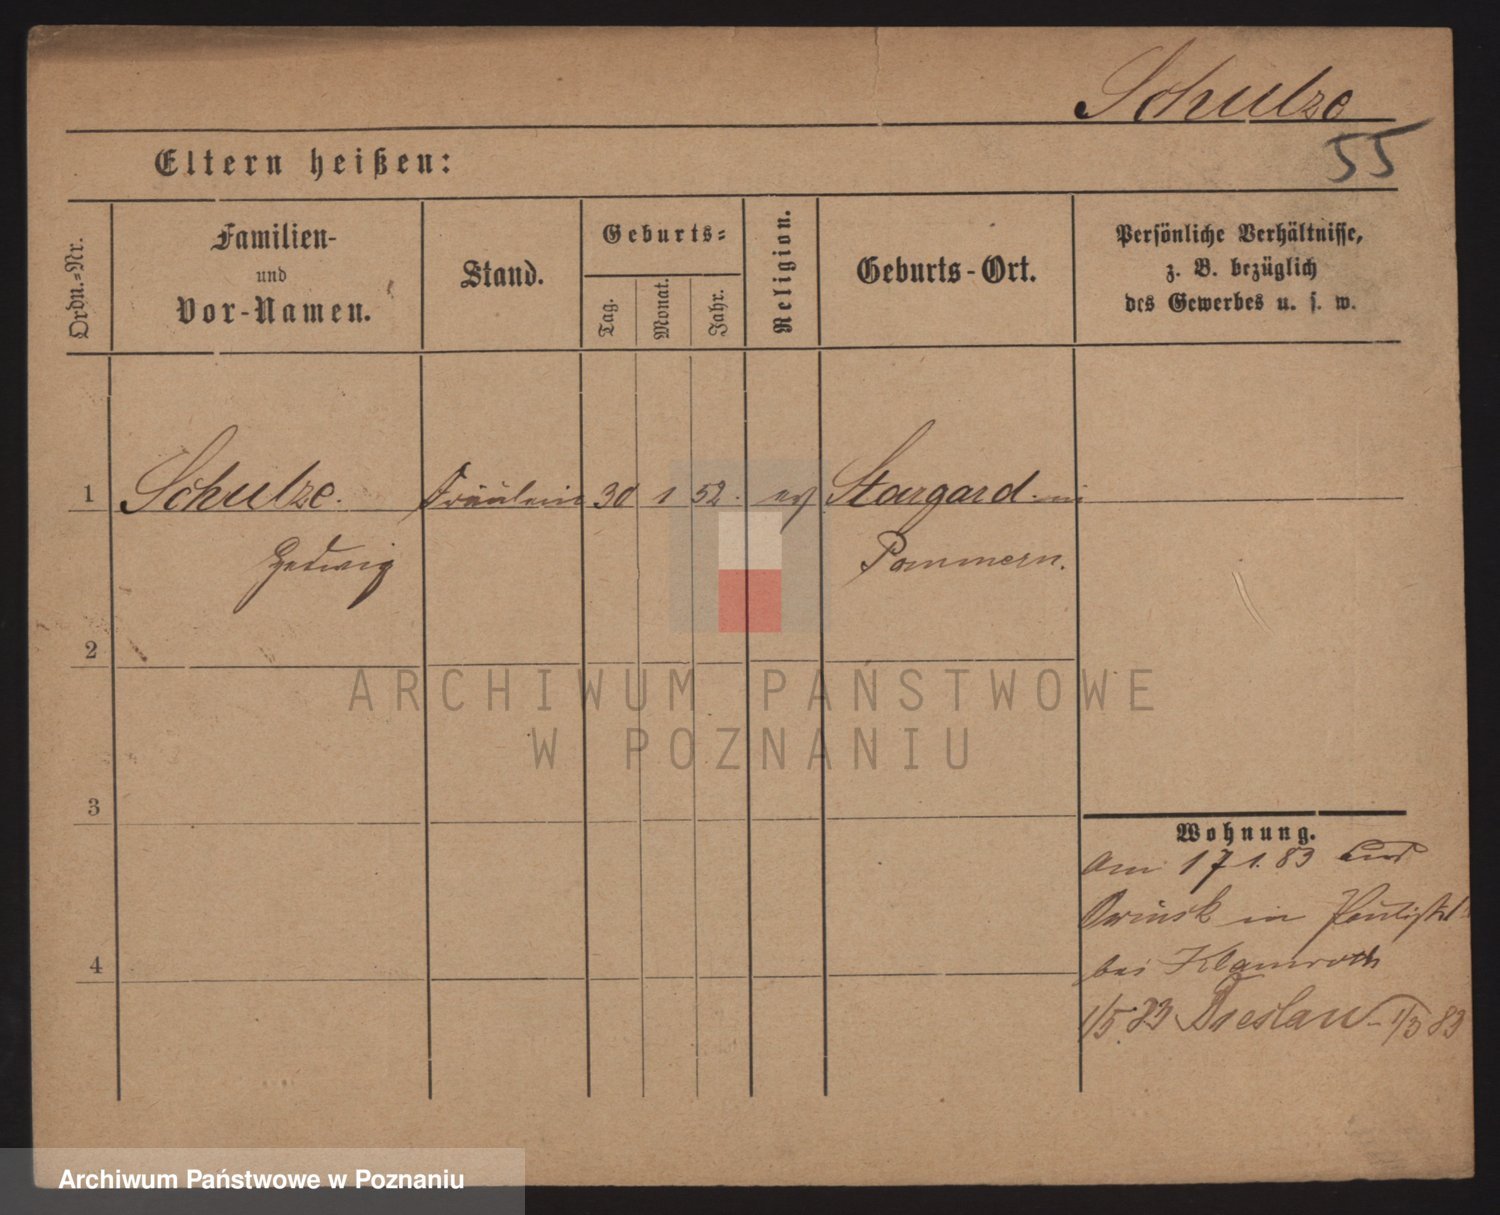 Schulze
55
Eltern heißen:
Ordn.-Nr.
Familien-
und
Vor-Namen.
Stand.
Geburts-
Tag.
Monat.
Jahr.
Religion.
Geburts-Ort.
Persönliche Verhältnisse,
z. B. bezüglich
des Gewerbes u. s. w.
1 Schulze. Fräulein 30 1 52. ev Stargard in
Hedwig Pommern.
2
3
4
Wohnung.
Am 17 1. 83 aus
in
bei Klamroth
1/5. 83 Breslau - 1/5 83
ARCHIWUM PAŃSTWOWE
W POZNANIU
Archiwum Państwowe w Poznaniu